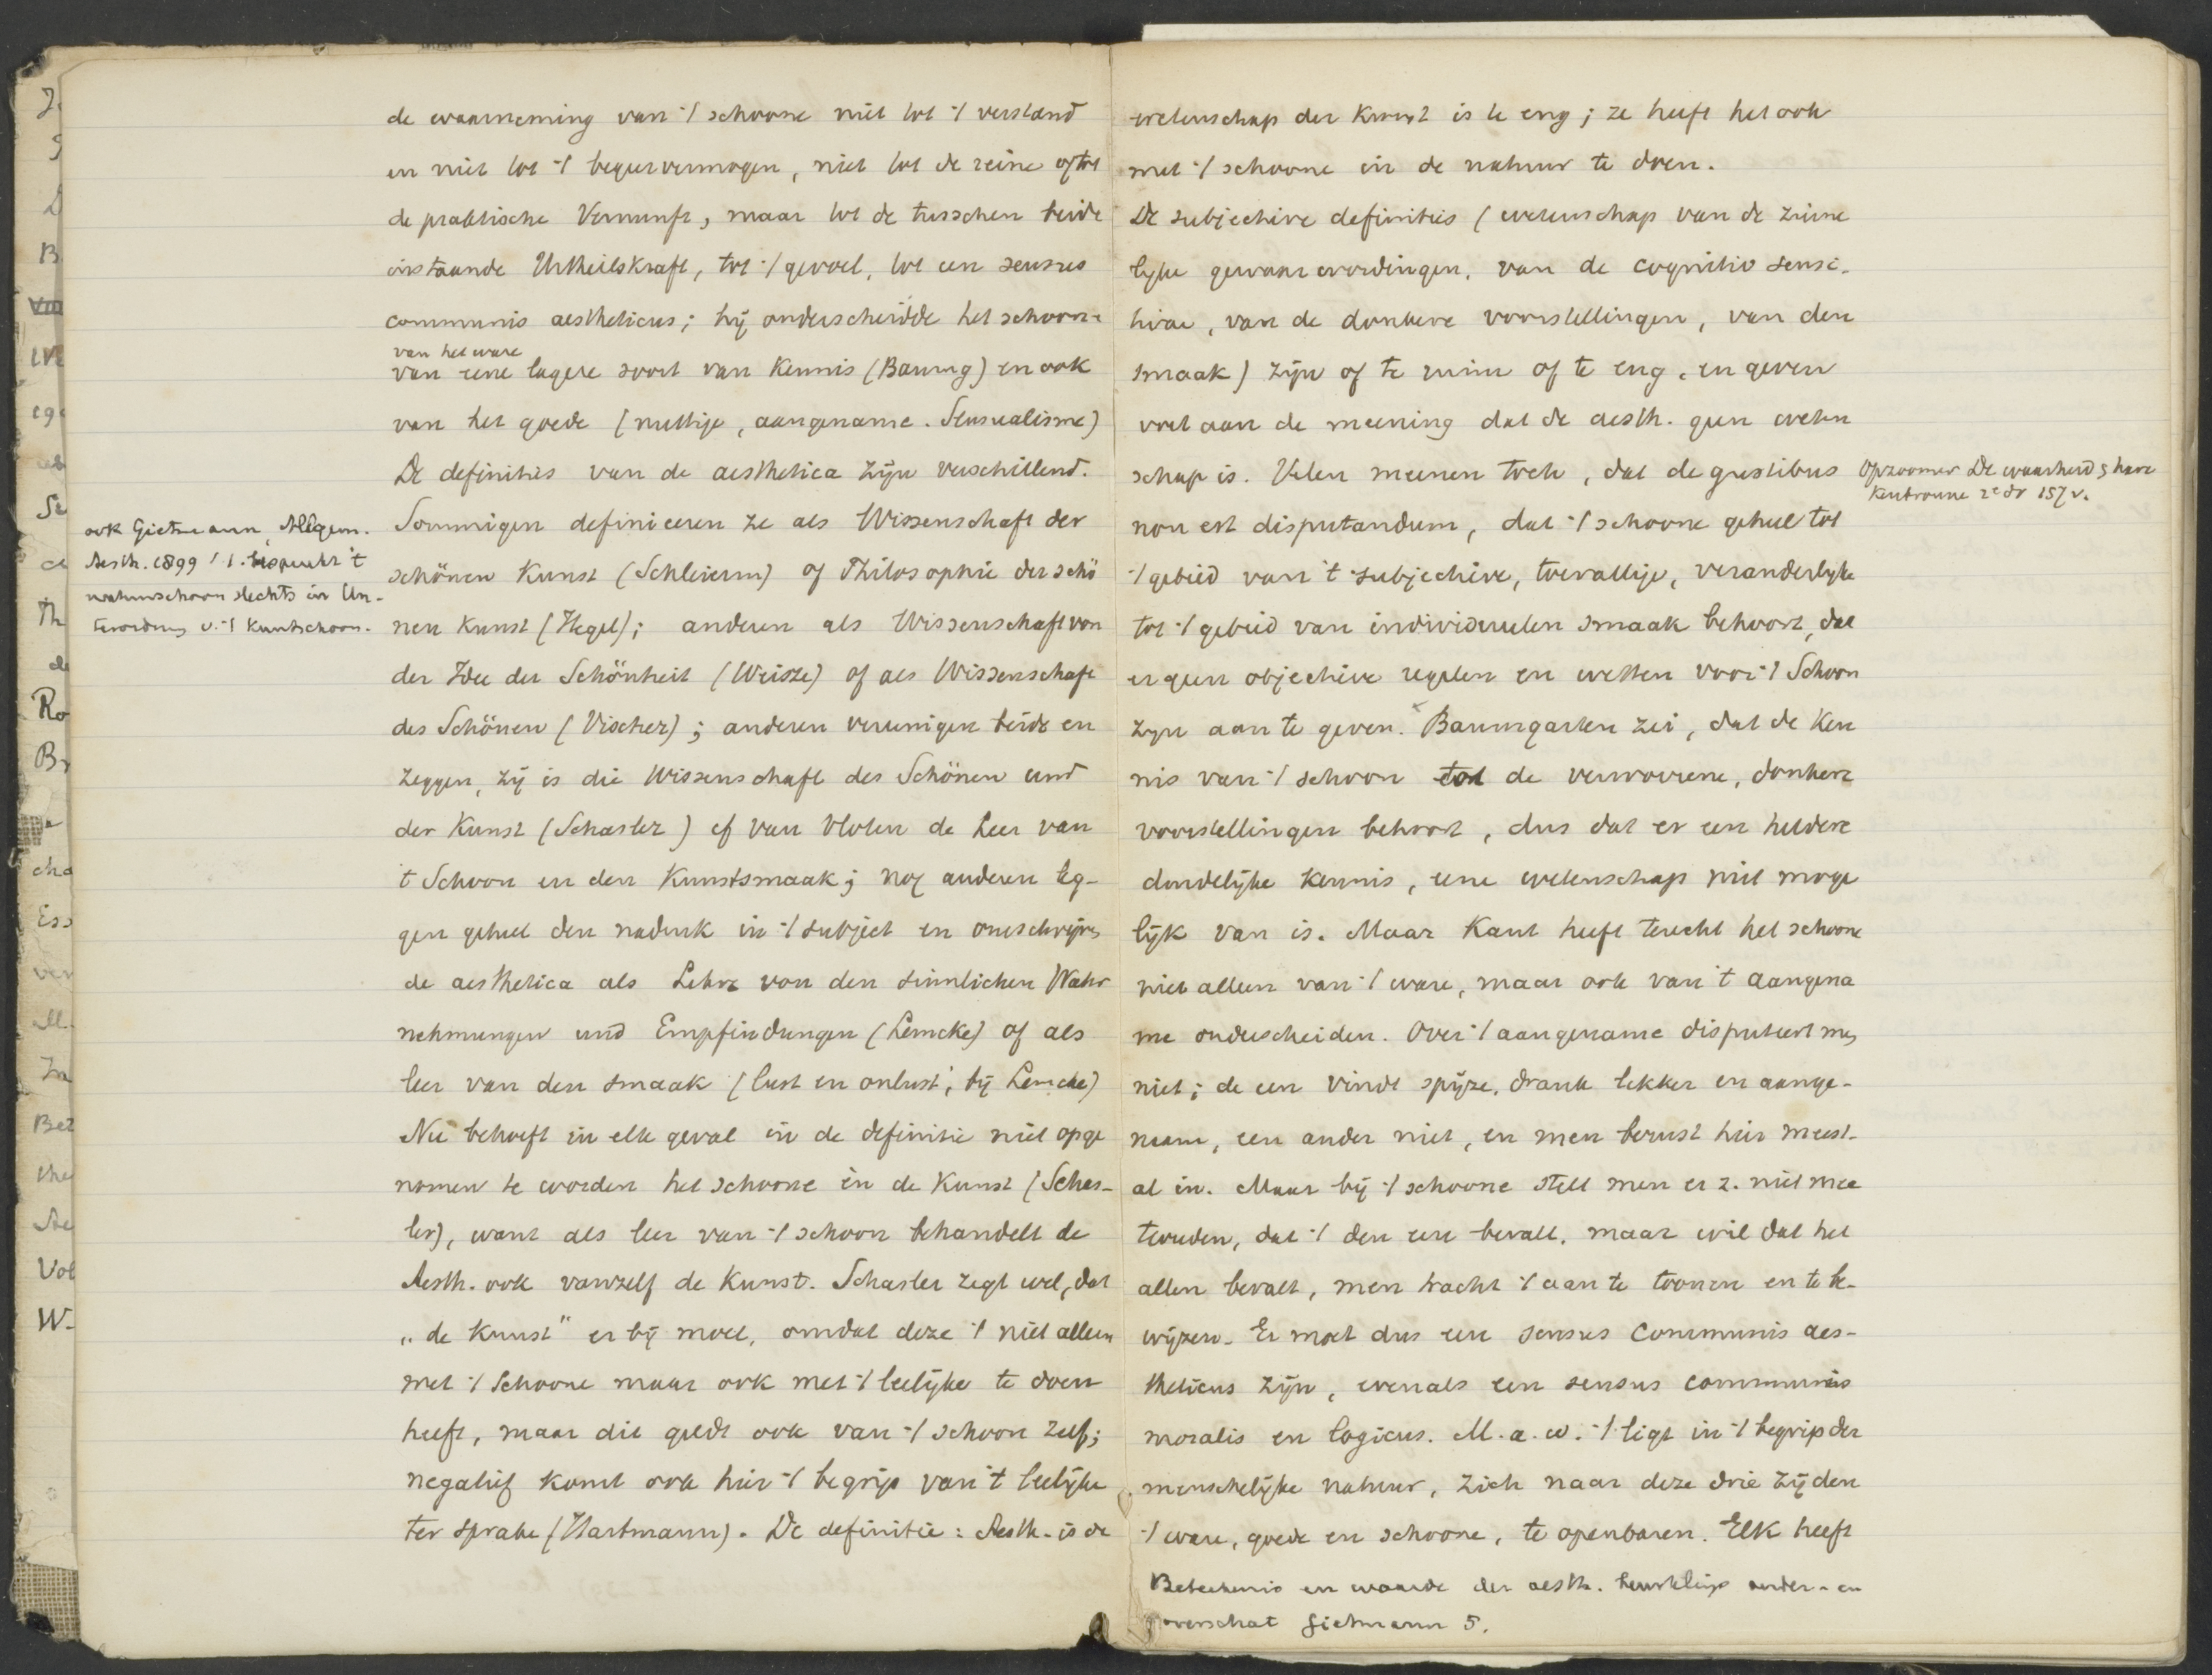 de waarneming van 't schoone niet tot 't verstand
en niet tot 't begeervermogen, niet tot de reine of tot
de praktische Vernunft, maar tot de tusschen beide
instaande Urtheilskraft, tot 't gevoel, tot een sensus
communis aestheticus; hij onderscheidde het schoone
van het ware
van eene lagere soort van kennis (Baumg) en ook
van het goede (nuttige, aangename. Sensualisme)
De definities van de aesthetica zijn verschillend.
Sommigen definieeren ze als Wissenschaft der
schönen Kunst (Schleierm) of Philosophie der schö
nen Kunst (Hegel); anderen als Wissenschaft von
der Idee der Schönheit (Weisze) of als Wissenschaft
des Schönen (Vischer); anderen vereenigen beide en
zeggen, zij is die Wissenschaft des Schönen und
der Kunst (Schasler) cf van Vloten de Leer van
't Schoon en den Kunstsmaak; nog anderen leg-
gen geheel den nadruk in 't subject en omschrijven
de aesthetica als Lehre von den sinnlichen Wahr
nehmungen und Empfindungen (Lemcke) of als
leer van den smaak (lust en onlust, bij Lemcke)
Nu behoeft in elk geval in de definitie niet opge
nomen te worden het schoone in de Kunst (Schas-
ler), want als leer van 't schoon behandelt de
Aesth. ook vanzelf de Kunst. Schasler zegt wel, dat
„de Kunst" er bij moet, omdat deze 't niet alleen
met 't Schoone maar ook met 't leelijke te doen
heeft, maar dit geldt ook van 't schoon zelf;
negatief komt ook hier 't begrip van 't leelijke
ter sprake (Hartmann). De definitie: Aesth. is de
ook Gietmann, Allgem.
Aesth. 1899 / 1. bespreekt 't
natuurschoon slechts in Un-
terordnung v. 't kunstschoon.
wetenschap der Kunst is te eng; ze heeft het ook
met 't schoone in de natuur te doen.
De subjectieve definities (wetenschap van de zinne
lyke gewaarwordingen, van de cognitio sensi-
tivae, van de donkere voorstellingen, van den
smaak) zijn of te ruim of te eng, en geven
voet aan de meening dat de aesth. geen weten
schap is. Velen meenen toch, dat de gustibus
non est disputandum, dat 't schoone geheel tot
't gebied van 't subjectieve, toevallige, veranderlyke
tot 't gebied van individueelen smaak behoort, dat
er geen objectieve regelen en wetten voor 't Schoon
zyn aan te geven. Baumgarten zei, dat de Ken
nis van 't schoon tot de verworrene, donkere
voorstellingen behoort, dus dat er een heldere
duidelijke kennis, eene wetenschap niet moge
lijk van is. Maar Kant heeft terecht het schoone
niet alleen van 't ware, maar ook van 't aangena
me onderscheiden. Over 't aangename disputeert men
niet; de een vindt spijze, drank lekker en aange-
naam, een ander niet, en men berust hier meest-
al in. Maar bij 't schoone stelt men er z. niet mee
tevreden, dat 't den een bevalt, maar wil dat het
allen bevalt, men tracht 't aan te toonen en te be-
wijzen. Er moet dus een sensus communis aes-
theticus zijn, evenals een sensus communis
moralis en logicus. M. a. w. 't ligt in 't begrip der
menschelijke natuur, zich naar deze drie zijden
't ware, goede en schoone, te openbaren. Elk heeft
Opzoomer De waarheid & hare
kenbronnen 2e dr 157 v.
Beteekenis en waarde der aesth. onder- en
overschat Gietmann 5.